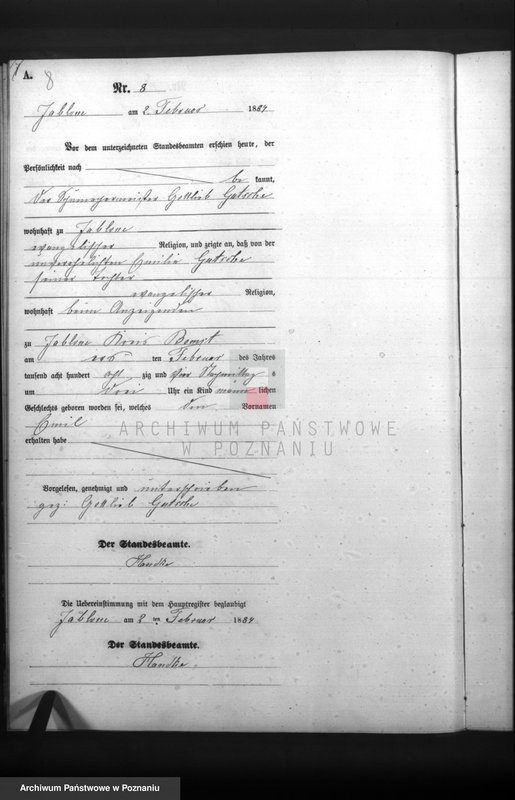 A. 8
Nr. 8
Jablone am 2. Februar 1884
Vor dem unterzeichneten Standesbeamten erschien heute, der
Persönlichkeit nach
be kannt,
der Gottlieb Gutsche
wohnhaft zu Jablone
evangelischer Religion, und zeigte an, daß von der
unverehelichten Emilie Gutsche
seiner Tochter
evangelischer Religion,
wohnhaft beim Anzeigenden
zu Jablone Kreis Bomst
am ten Februar des Jahres
tausend acht hundert acht zig und vier Nachmittag s
um drei Uhr ein Kind männ lichen
Geschlechts geboren worden sei, welches den Vornamen
Emil
erhalten habe
ARCHIWUM PAŃSTWOWE
W POZNANIU
Vorgelesen, genehmigt und unterschrieben
gez: Gottlieb Gutsche
Der Standesbeamte.
Handke
Die Uebereinstimmung mit dem Hauptregister beglaubigt
Jablone am 2 ten Februar 1884
Der Standesbeamte.
Handke
Archiwum Państwowe w Poznaniu